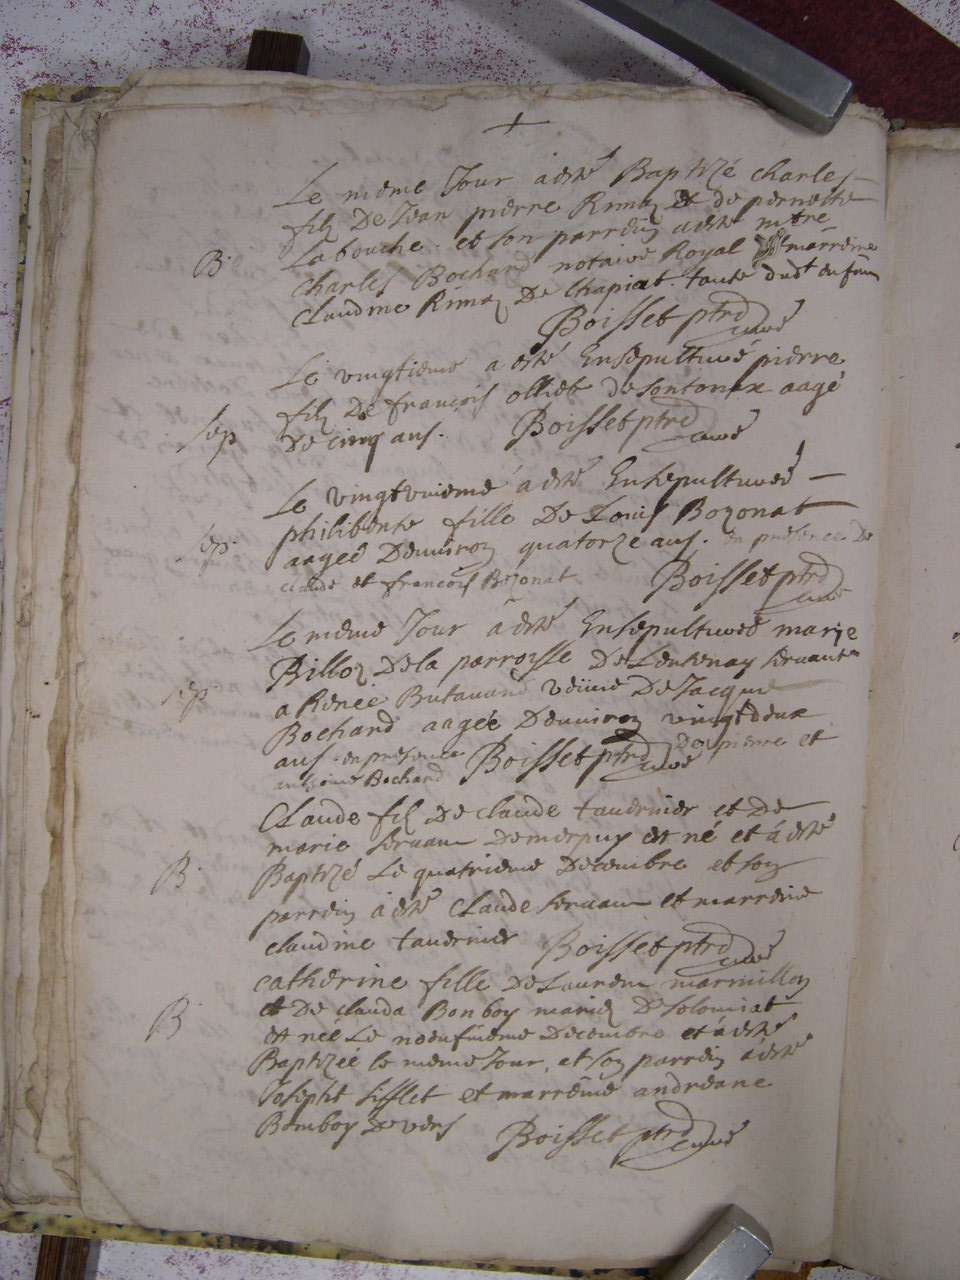 +
Le meme Jour à esté Baptizé charles
filz De Jean pierre Rimaz et de pernette
B. Labouche. et son parrein a esté mtre
charles Bochard notaire Royal et marreine
claudine Rimaz De Chapiat. tante dudt enfan
Boisset ptrd curé
Le vingtieme a esté Ensepulturé pierre
filz De francois olliet de sontonax aagé
sep De cinq ans. Boisset ptrd curé
Le vingtvnieme à esté Ensepulturée
philiberte fille De Louis Bozonat
sep. aagée Denuiron quatorze ans. en presence De
claude et francois Bozonat Boisset ptrd curé
Le meme Jour à esté Ensepulturée marie
Billoz De la parroisse De Lentenay seruante
sep a Renee Butauand veüue De Jacque
Bochard aagée Denuiron vingtdeux
ans. en presence De pierre et
anthoine Bochard Boisset ptrd curé
Claude filz De claude tauernier et De
marie seruan De merpuy est né et à esté
B. Baptizé Le quatrieme Decembre et son
parrein à esté Claude seruan et marreine
claudine tauernier Boisset ptrd curé
catherine fille De Laurent marmillon
B et De clauda Bonboy mariez De Solomiat
est nee Le neufuieme Decembre et à esté
Baptizée le meme Jour, et son parrein à esté
Joseph sifflet et marreine andreane
Bomboy De vers Boisset ptrd curé